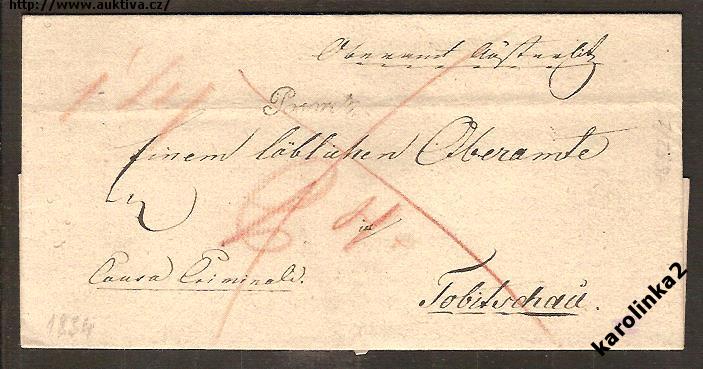 http://www.auktiva.cz/
Oberamt Austerlitz
Einem löblichen Oberamte
in
Causa Criminalis.
Tobitschau.
1834
karolinka2